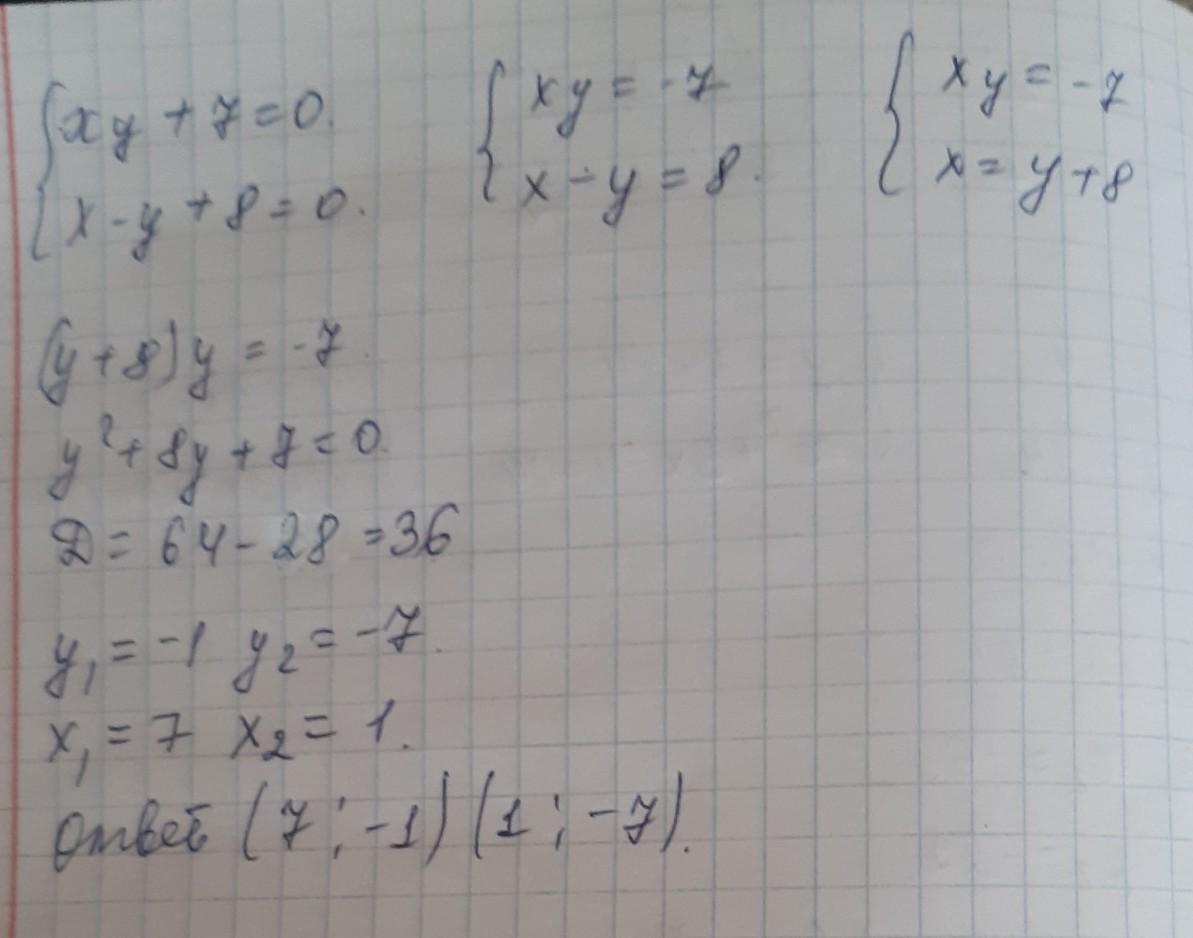 { xy + 7 = 0. { xy = -7 { xy = -7
x - y + 8 = 0. x - y = 8. x = y + 8
(y + 8) y = -7.
y² + 8y + 7 = 0.
D = 64 - 28 = 36
y₁ = -1 y₂ = -7.
x₁ = 7 x₂ = 1.
ответ (7 ; -1) (1 ; -7).